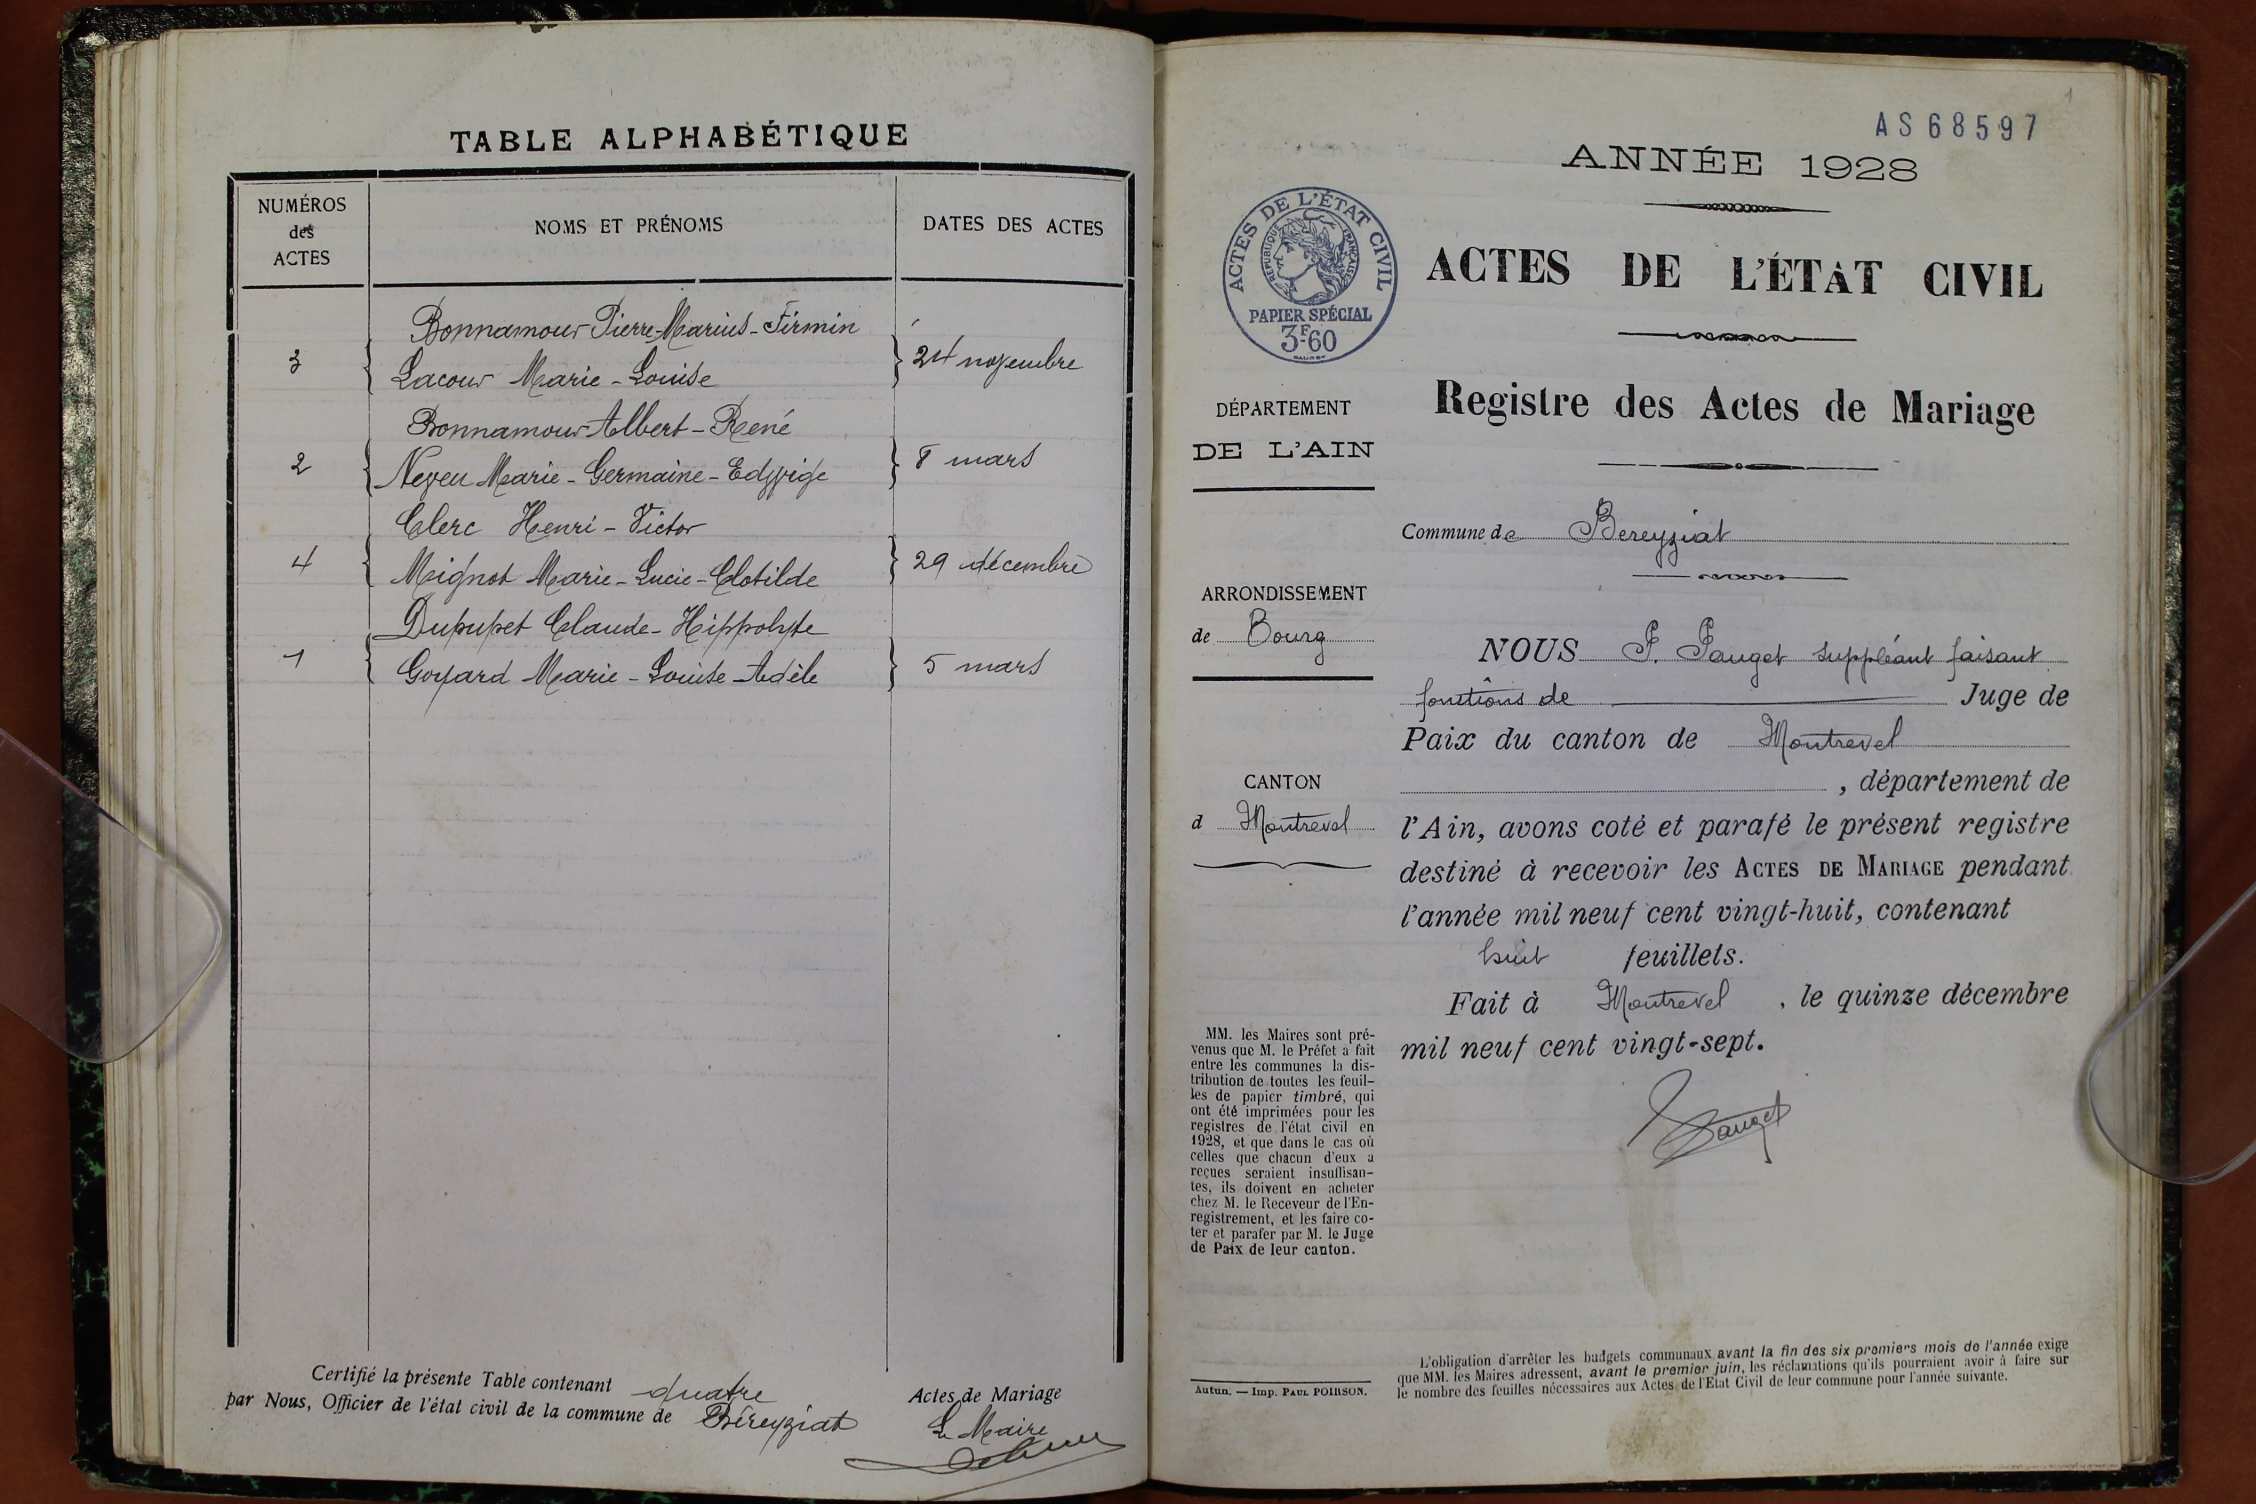 TABLE ALPHABÉTIQUE
NUMÉROS
des
ACTES
NOMS ET PRÉNOMS
DATES DES ACTES
Bonnamour Pierre-Marius-Firmin
3 Lacour Marie-Louise 24 novembre
Bonnamour Albert-René
2 Neveu Marie-Germaine-Edwige 8 mars
Clerc Henri-Victor
4 Mignot Marie-Lucie-Clotilde 29 décembre
Dupupet Claude-Hippolyte
1 Goyard Marie-Louise-Adèle 5 mars
Certifié la présente Table contenant quatre Actes de Mariage
par Nous, Officier de l'état civil de la commune de Béreyziat
Le Maire
AS68597
1
ANNÉE 1928
ACTES DE L'ÉTAT CIVIL
RÉPUBLIQUE FRANÇAISE
PAPIER SPÉCIAL
3F60
ACTES DE L'ÉTAT CIVIL
Registre des Actes de Mariage
DÉPARTEMENT
DE L'AIN
Commune de Bereyziat
ARRONDISSEMENT
de Bourg
CANTON
d Montrevel
NOUS P. Pauget suppléant faisant
fonctions de Juge de
Paix du canton de Montrevel
, département de
l'Ain, avons coté et parafé le présent registre
destiné à recevoir les ACTES DE MARIAGE pendant
l'année mil neuf cent vingt-huit, contenant
huit feuillets.
Fait à Montrevel , le quinze décembre
mil neuf cent vingt-sept.
Pauget
MM. les Maires sont pré-
venus que M. le Préfet a fait
entre les communes la dis-
tribution de toutes les feuil-
les de papier timbré, qui
ont été imprimées pour les
registres de l'état civil en
1928, et que dans le cas où
celles que chacun d'eux a
reçues seraient insuffisan-
tes, ils doivent en acheter
chez M. le Receveur de l'En-
registrement, et les faire co-
ter et parafer par M. le Juge
de Paix de leur canton.
Autun. — Imp. PAUL POIRSON.
L'obligation d'arrêter les budgets communaux avant la fin des six premiers mois de l'année exige
que MM. les Maires adressent, avant le premier juin, les réclamations qu'ils pourraient avoir à faire sur
le nombre des feuilles nécessaires aux Actes de l'Etat Civil de leur commune pour l'année suivante.